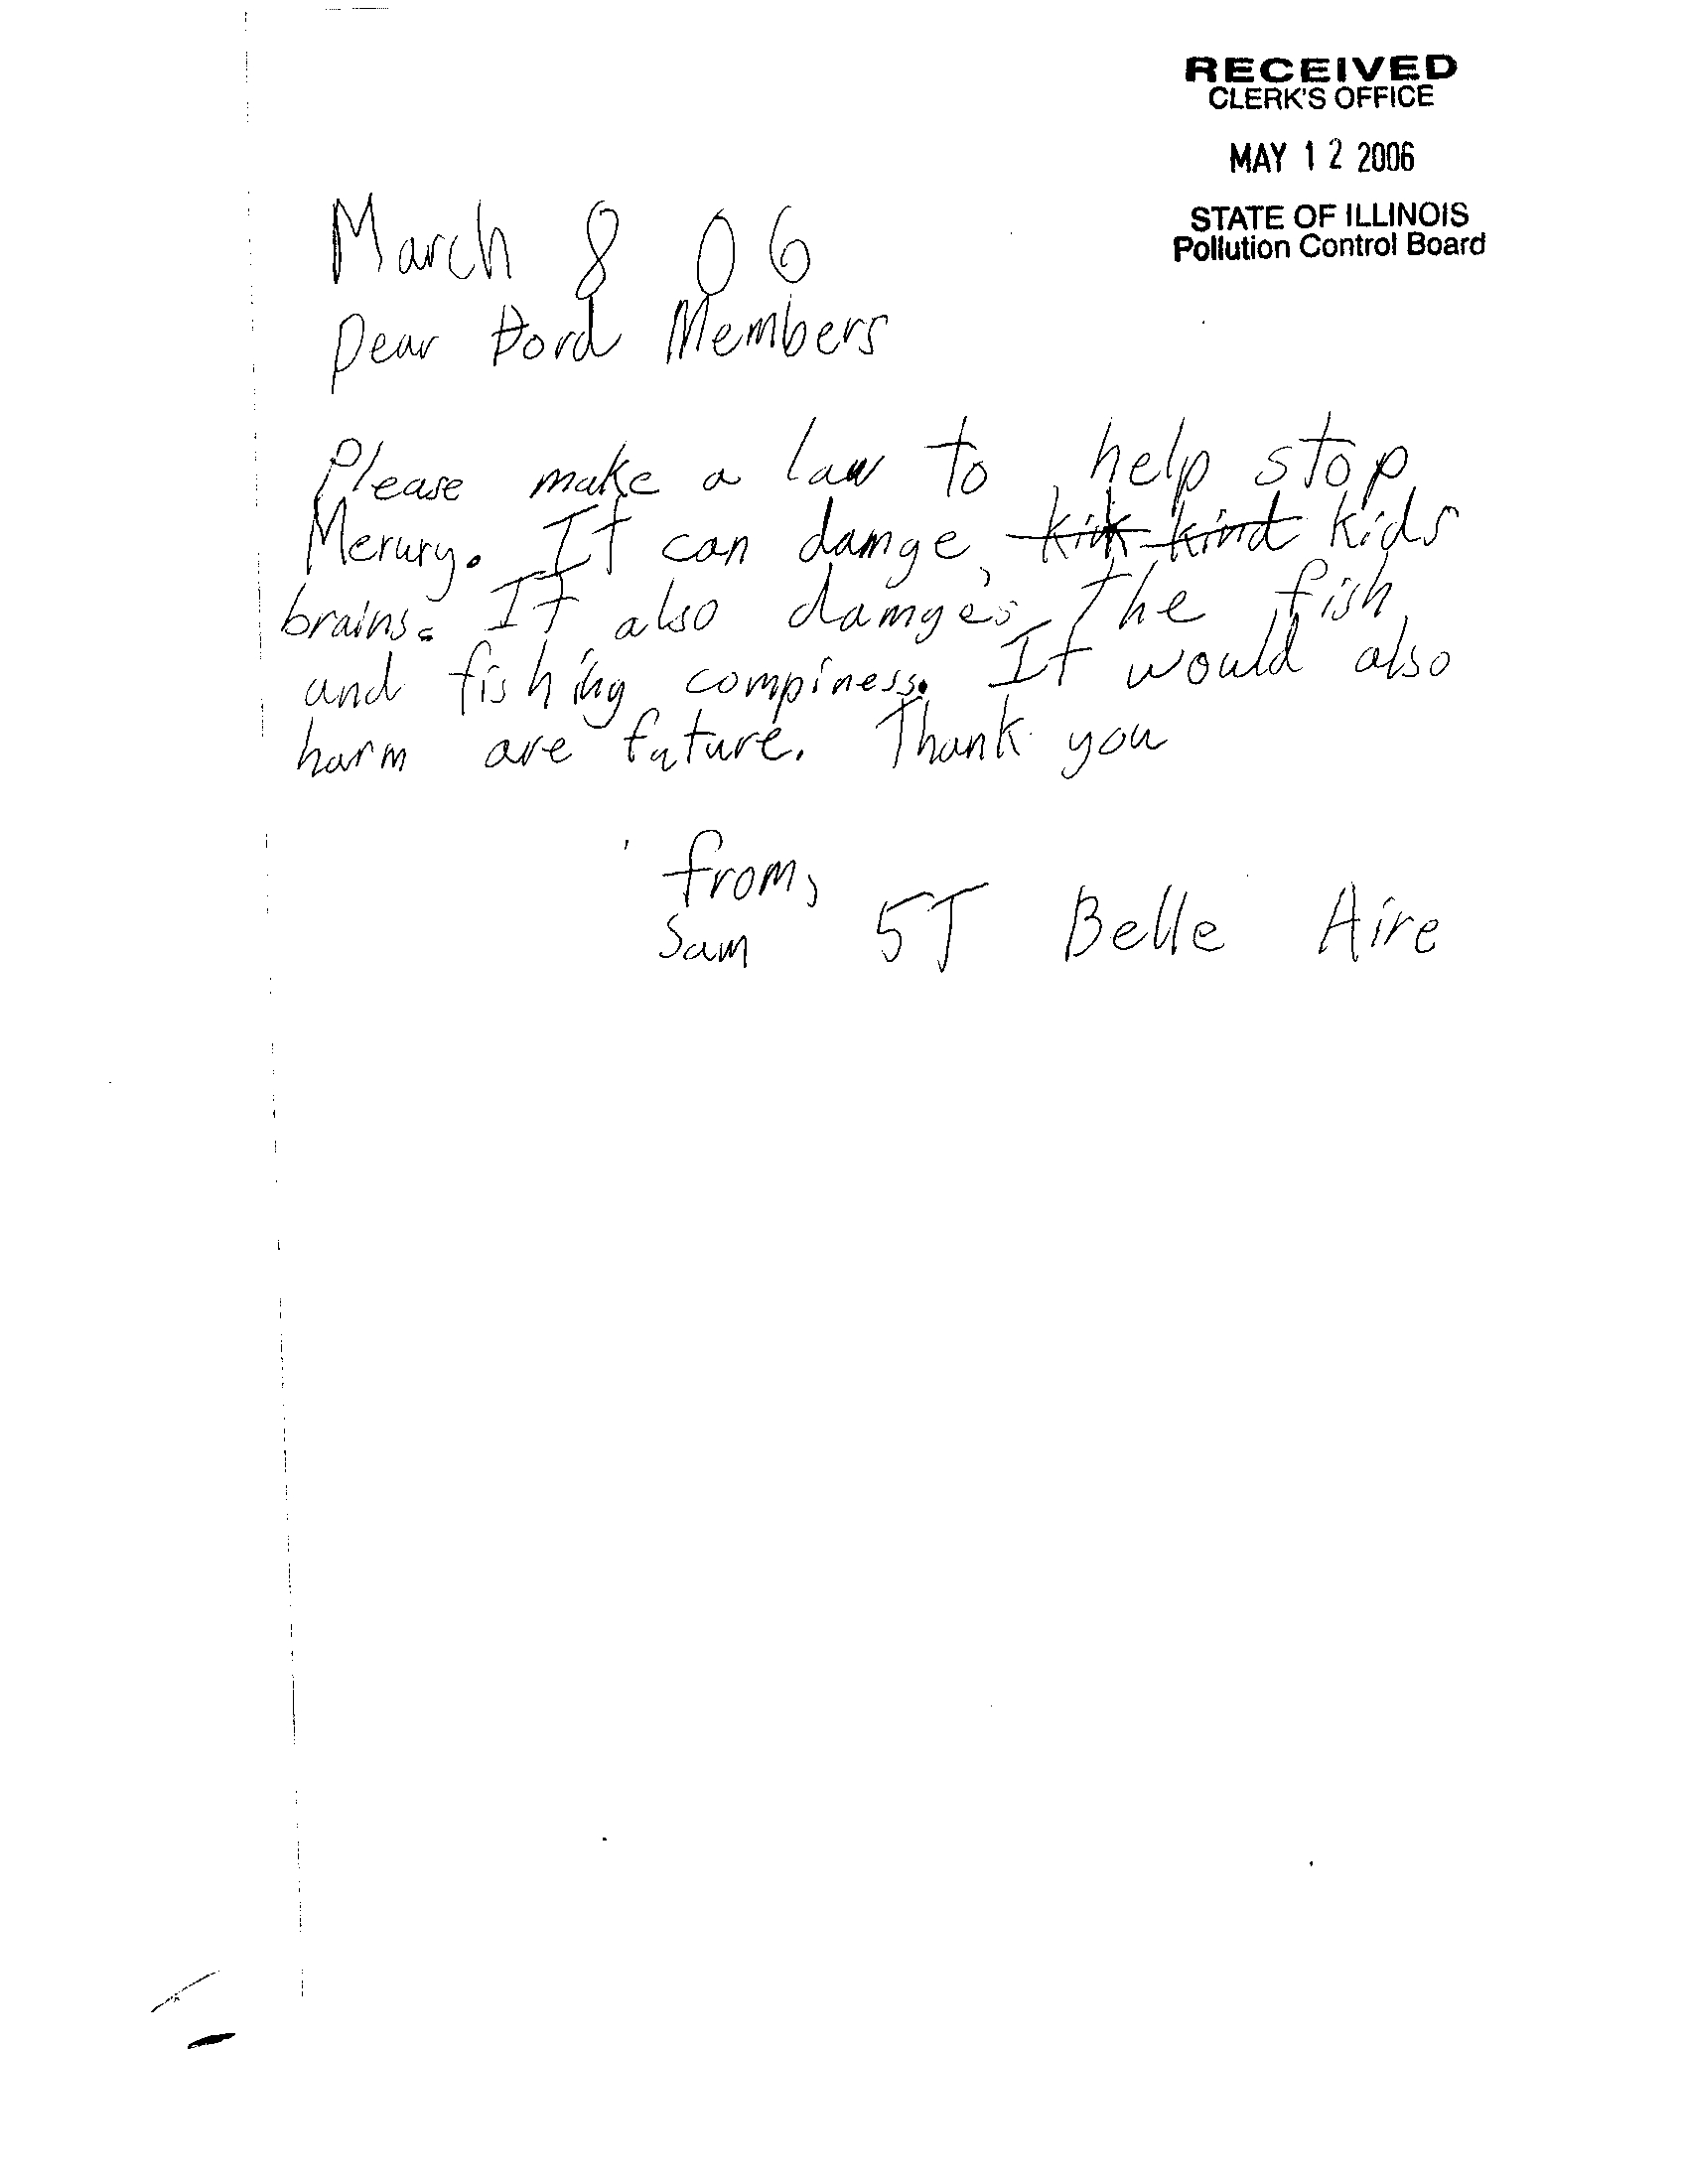 RECEIVED
CLERK'S OFFICE
MAY 12 2006
STATE OF ILLINOIS
Pollution Control Board
March 8 06
Dear Dord Members
Please make a law to help stop
Merury. It can damge kids
brains. It also damges the fish
and fishing compiness. It would also
harm are future. Thank you
from,
Sam 5J Belle Aire